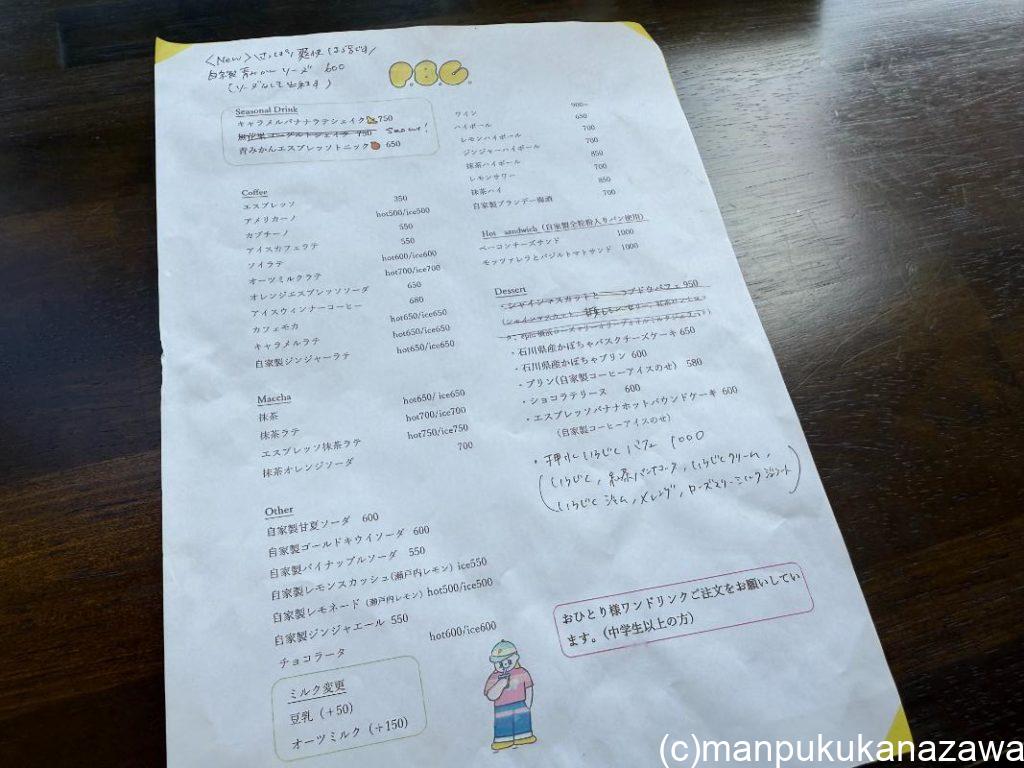 〈New〉さっぱり爽快な1杯です
自家製青みかんソーダ 600
P.O.G.
Seasonal Drink
キャラメルバナナラテシェイク 750
無花果ヨーグルトシェイク 750
青みかんエスプレッソトニック 650
Coffee
エスプレッソ 350
アメリカーノ hot500/ice500
カプチーノ 550
アイスカフェラテ 550
ソイラテ hot600/ice600
オーツミルクラテ hot700/ice700
オレンジエスプレッソソーダ 650
アイスウィンナーコーヒー 680
カフェモカ hot650/ice650
キャラメルラテ hot650/ice650
自家製ジンジャーラテ hot650/ice650
Maccha
抹茶 hot650/ ice650
抹茶ラテ hot700/ice700
エスプレッソ抹茶ラテ hot750/ice750
抹茶オレンジソーダ 700
Other
自家製甘夏ソーダ 600
自家製ゴールドキウイソーダ 600
自家製パイナップルソーダ 550
自家製レモンスカッシュ(瀬戸内レモン) ice550
自家製レモネード (瀬戸内レモン) hot500/ice500
自家製ジンジャエール 550
チョコラータ hot600/ice600
ミルク変更
豆乳 (+50)
オーツミルク (+150)
ワイン 900~
ハイボール 650
レモンハイボール 700
ジンジャーハイボール 700
抹茶ハイボール 850
レモンサワー 700
抹茶ハイ 850
自家製ブランデー梅酒 700
Hot sandwich (自家製全粒粉入りパン使用)
ベーコンチーズサンド 1000
モッツァレラとバジルトマトサンド 1000
Dessert
・シャインマスカットと ブドウパフェ 950
・石川県産かぼちゃバスクチーズケーキ 650
・石川県産かぼちゃプリン 600
・プリン(自家製コーヒーアイスのせ) 580
・ショコラテリーヌ 600
・エスプレッソバナナホットパウンドケーキ 600
(自家製コーヒーアイスのせ)
・押水いちじくパフェ 1000
(いちじく, 紅茶パンナコッタ, いちじくクリーム,
いちじくジャム, メレンゲ, ローズマリーミルクジェラート)
おひとり様ワンドリンクご注文をお願いしてい
ます。(中学生以上の方)
(c)manpukukanazawa